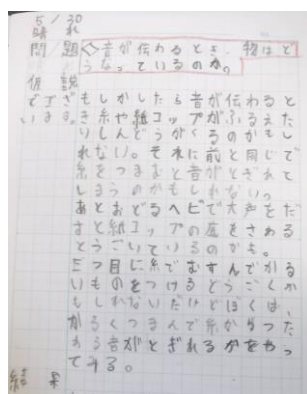 5/30
晴れ
問題
◇音が伝わるとき、物はど
うなっているのか。
仮説
もしかしたら音が伝わると
き糸や紙コップがふるえた
りしんどうがくるのかもし
れない。それに前と同じで
糸をつまむと音がとぎれて
しまうのかもしれない。
あとおどるヘビで大声をだ
すと紙コップの底をさわる
とうごいているのかも。
三つ目に糸でむすんでかる
いものをつけるとうごくか
もしれないだけどぼくは、
かるくつまんで糸からつた
わる音がとぎれるかをやっ
てみる。
結果